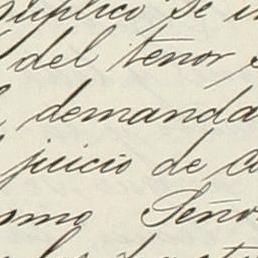 suplico se
del tenor
demanda
juicio de
como Señor